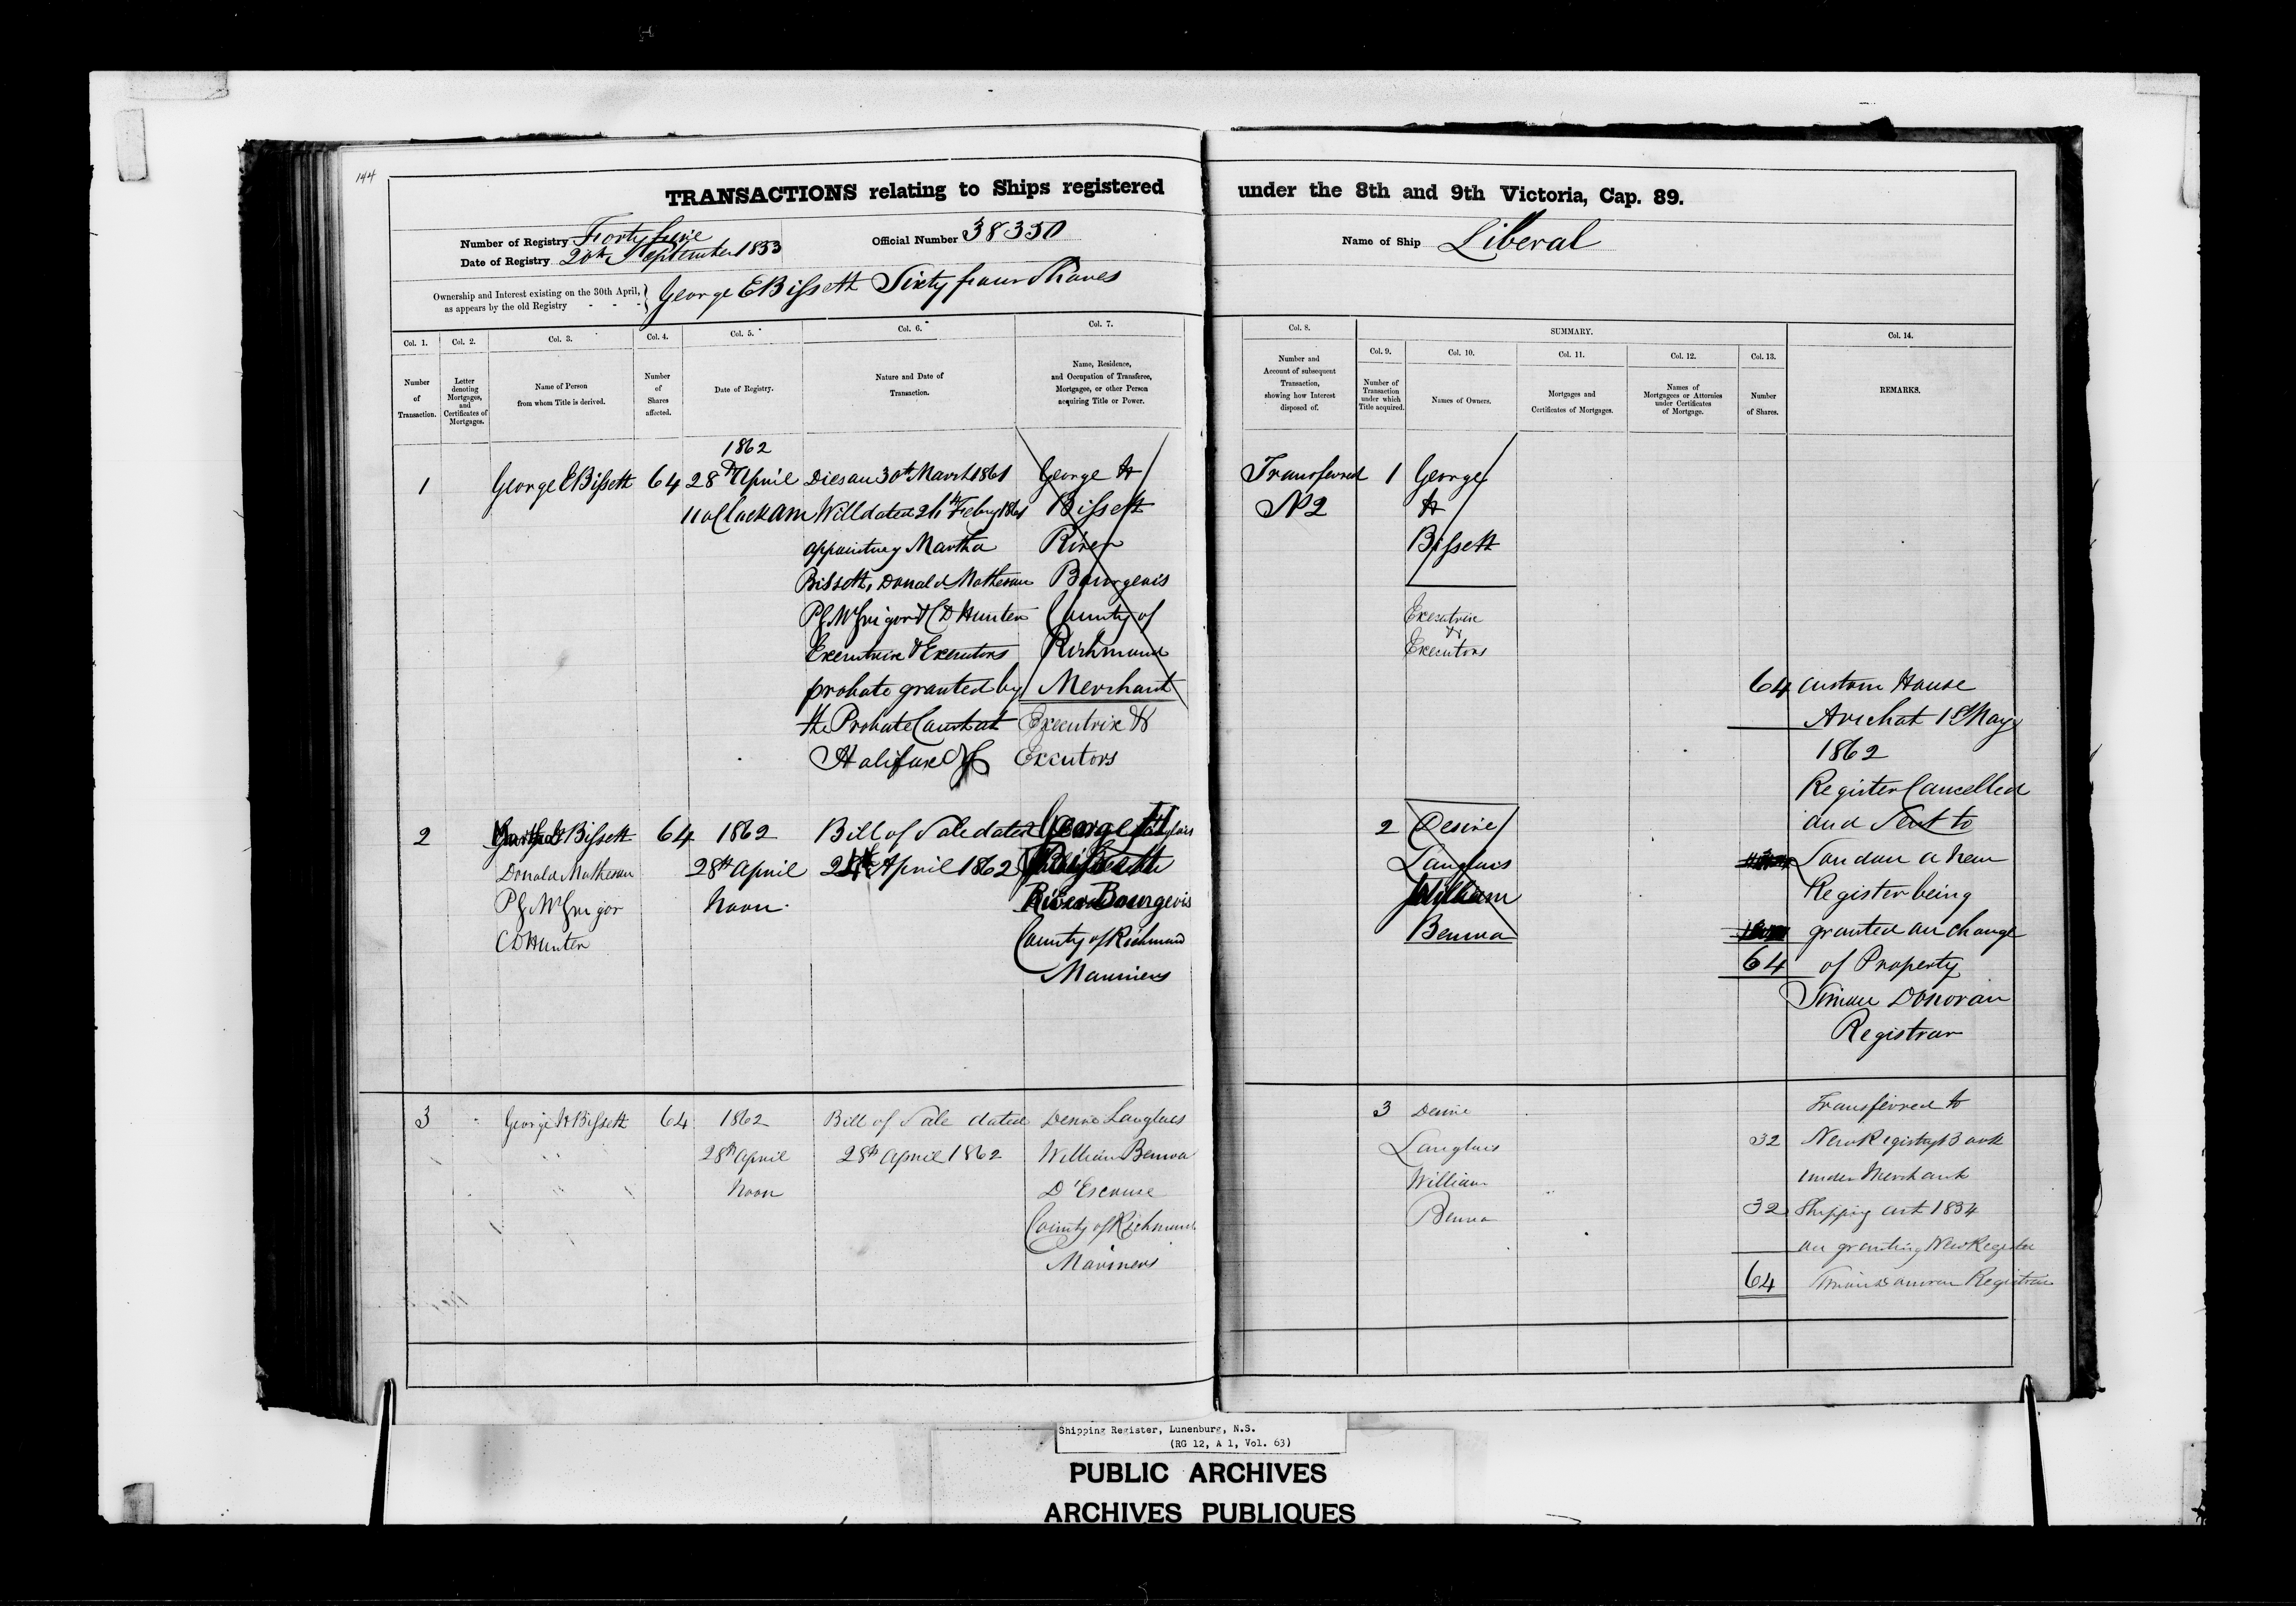 144
TRANSACTIONS relating to Ships registered under the 8th and 9th Victoria, Cap. 89.
Number of Registry Forty five
Date of Registry 20th September 1853
Official Number 38350
Name of Ship Liberal
Ownership and Interest existing on the 30th April,
as appears by the old Registry - - -
George E Bissett Sixty four Shares
Col. 1.
Number
of
Transaction.
Col. 2.
Letter
denoting
Mortgages,
and
Certificates of
Mortgages.
Col. 3.
Name of Person
from whom Title is derived.
Col. 4.
Number
of
Shares
affected.
Col. 5.
Date of Registry.
Col. 6.
Nature and Date of
Transaction.
Col. 7.
Name, Residence,
and Occupation of Transferee,
Mortgagee, or other Person
acquiring Title or Power.
Col. 8.
Number and
Account of subsequent
Transaction,
showing how Interest
disposed of.
SUMMARY.
Col. 9.
Number of
Transaction
under which
Title acquired.
Col. 10.
Names of Owners.
Col. 11.
Mortgages and
Certificates of Mortgages.
Col. 12.
Names of
Mortgagees or Attornies
under Certificates
of Mortgage.
Col. 13.
Number
of Shares.
Col. 14.
REMARKS.
1
George E Bissett
64
1862
28th April
11 oClock am
Dies on 30th March 1861
Will dated Feby 1861
appointing Martha
Bissett, Donald Matheson
P G McGrigor & C D Hunter
Executrix & Executors
probate granted by
the Probate Court at
Halifax
George H
Bissett
River
Bourgeois
County of
Richmond
Merchant
Executrix &
Executors
Transferred
No 2
1
George
H
Bissett
Executrix
&
Executors
64
Custom House
Arichat 1st May
1862
Register Cancelled
and Sent to
London a New
Register being
granted on change
of Property
Simon Donovan
Registrar
2
Bissett
Donald Matheson
P G McGrigor
C D Hunter
64
1862
28th April
Noon
Bill of Sale dated
April 1862
George H
Bissett
River Bourgeois
County of Richmond
Mariners
2
Desire
Langlois
William
Benwa
64
3
George H Bissett
64
1862
28th April
Noon
Bill of Sale dated
28th April 1862
Desire Langlois
William Benwa
D'Escouse
County of Richmond
Mariners
3
Desire
Langlois
William
Benwa
32
32
64
Transferred to
New Registry Book
under Merchant
Shipping act 1854
on granting New Register
Simon Donovan Registrar
Shipping Register, Lunenburg, N.S.
(RG 12, A 1, Vol. 63)
PUBLIC ARCHIVES
ARCHIVES PUBLIQUES